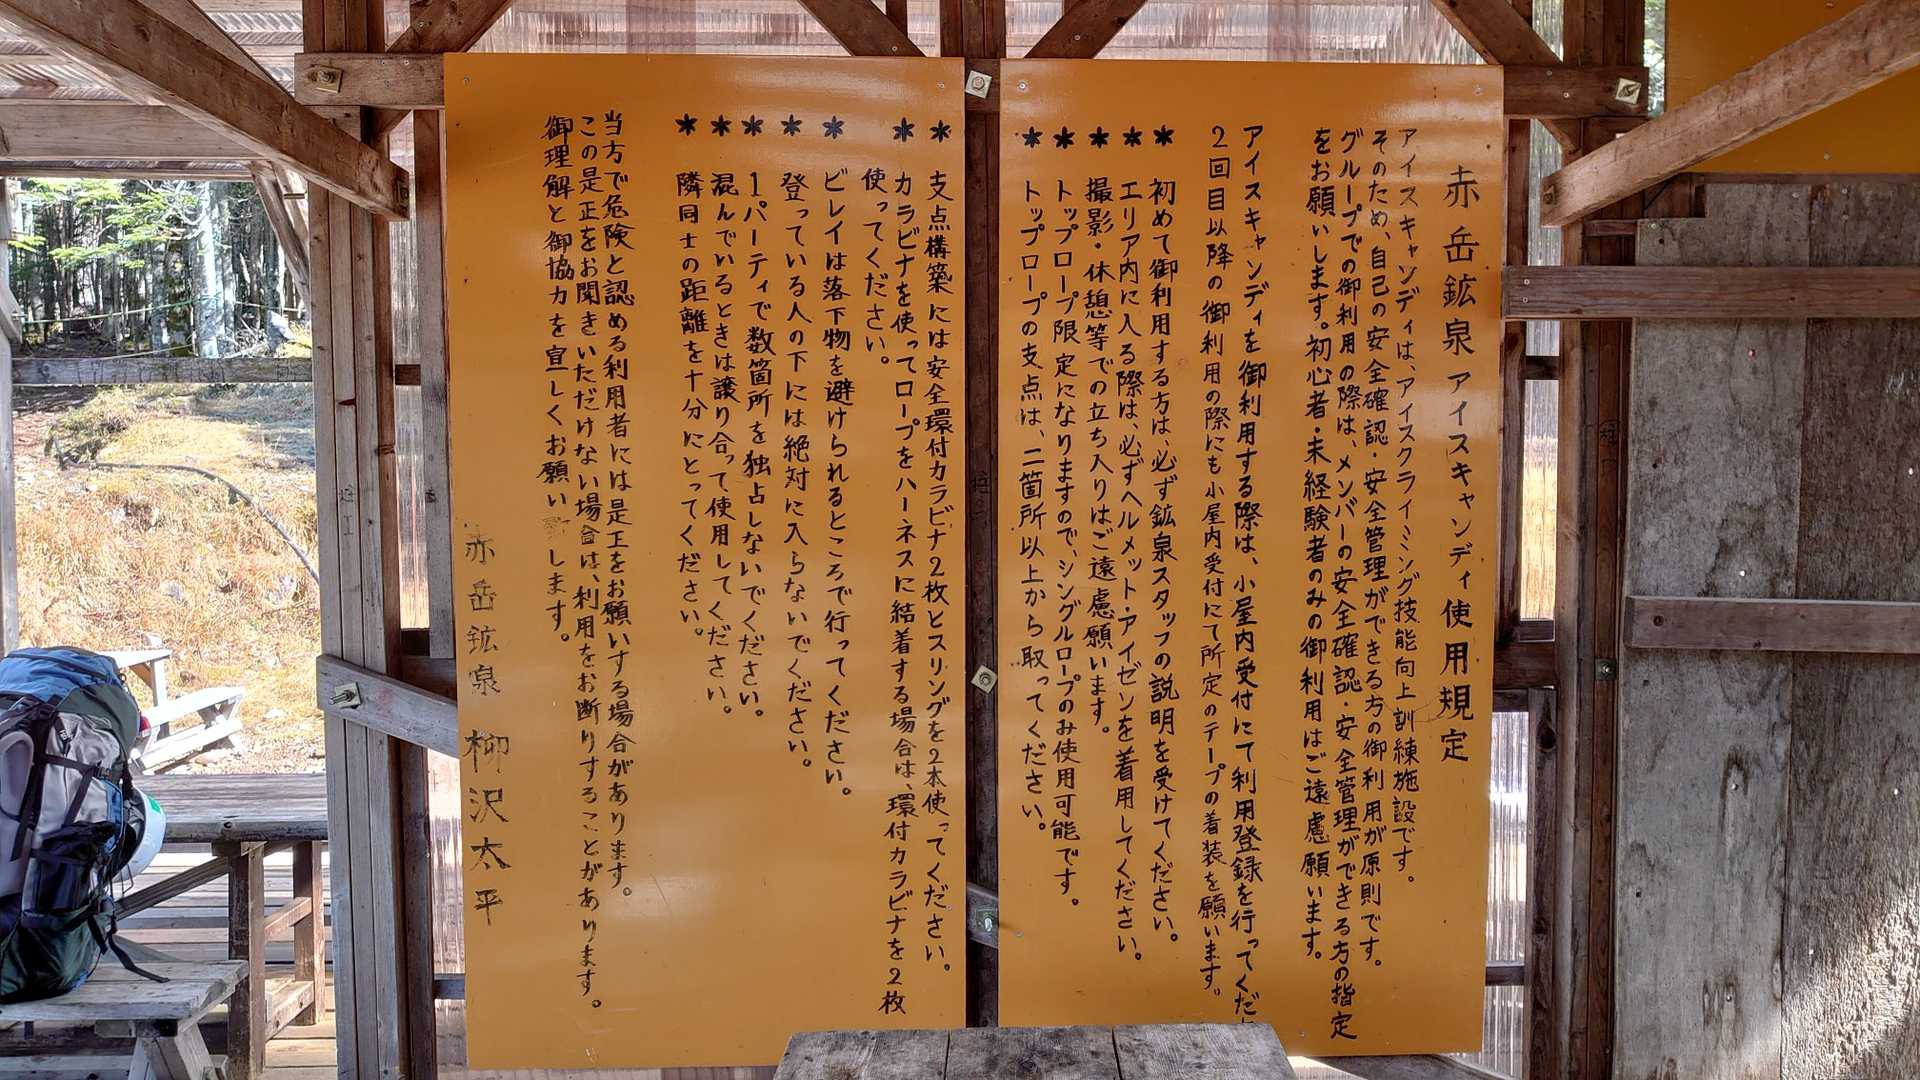 赤岳鉱泉 アイスキャンディ使用規定
アイスキャンディは、アイスクライミング技能向上訓練施設です。
そのため、自己の安全確認・安全管理ができる方の御利用が原則です。
グループでの御利用の際は、メンバーの安全確認・安全管理ができる方の指定
をお願いします。初心者・未経験者のみの御利用はご遠慮願います。
アイスキャンディを御利用する際は、小屋内受付にて利用登録を行ってくださ
2回目以降の御利用の際にも小屋内受付にて所定のテープの着装を願います。
* 初めて御利用する方は、必ず鉱泉スタッフの説明を受けてください。
* エリア内に入る際は、必ずヘルメット・アイゼンを着用してください。
* 撮影・休憩等での立ち入りはご遠慮願います。
* トップロープ限定になりますので、シングルロープのみ使用可能です。
* トップロープの支点は、二箇所以上から取ってください。
* 支点構築には安全環付カラビナ2枚とスリングを2本使ってください。
* カラビナを使ってロープをハーネスに結着する場合は、環付カラビナを2枚
使ってください。
* ビレイは落下物を避けられるところで行ってください。
* 登っている人の下には絶対に入らないでください。
* 1パーティで数箇所を独占しないでください。
* 混んでいるときは譲り合って使用してください。
* 隣同士の距離を十分にとってください。
当方で危険と認める利用者には是正をお願いする場合があります。
この是正をお聞きいただけない場合は、利用をお断りすることがあります。
御理解と御協力を宜しくお願いします。
赤岳鉱泉 柳沢太平